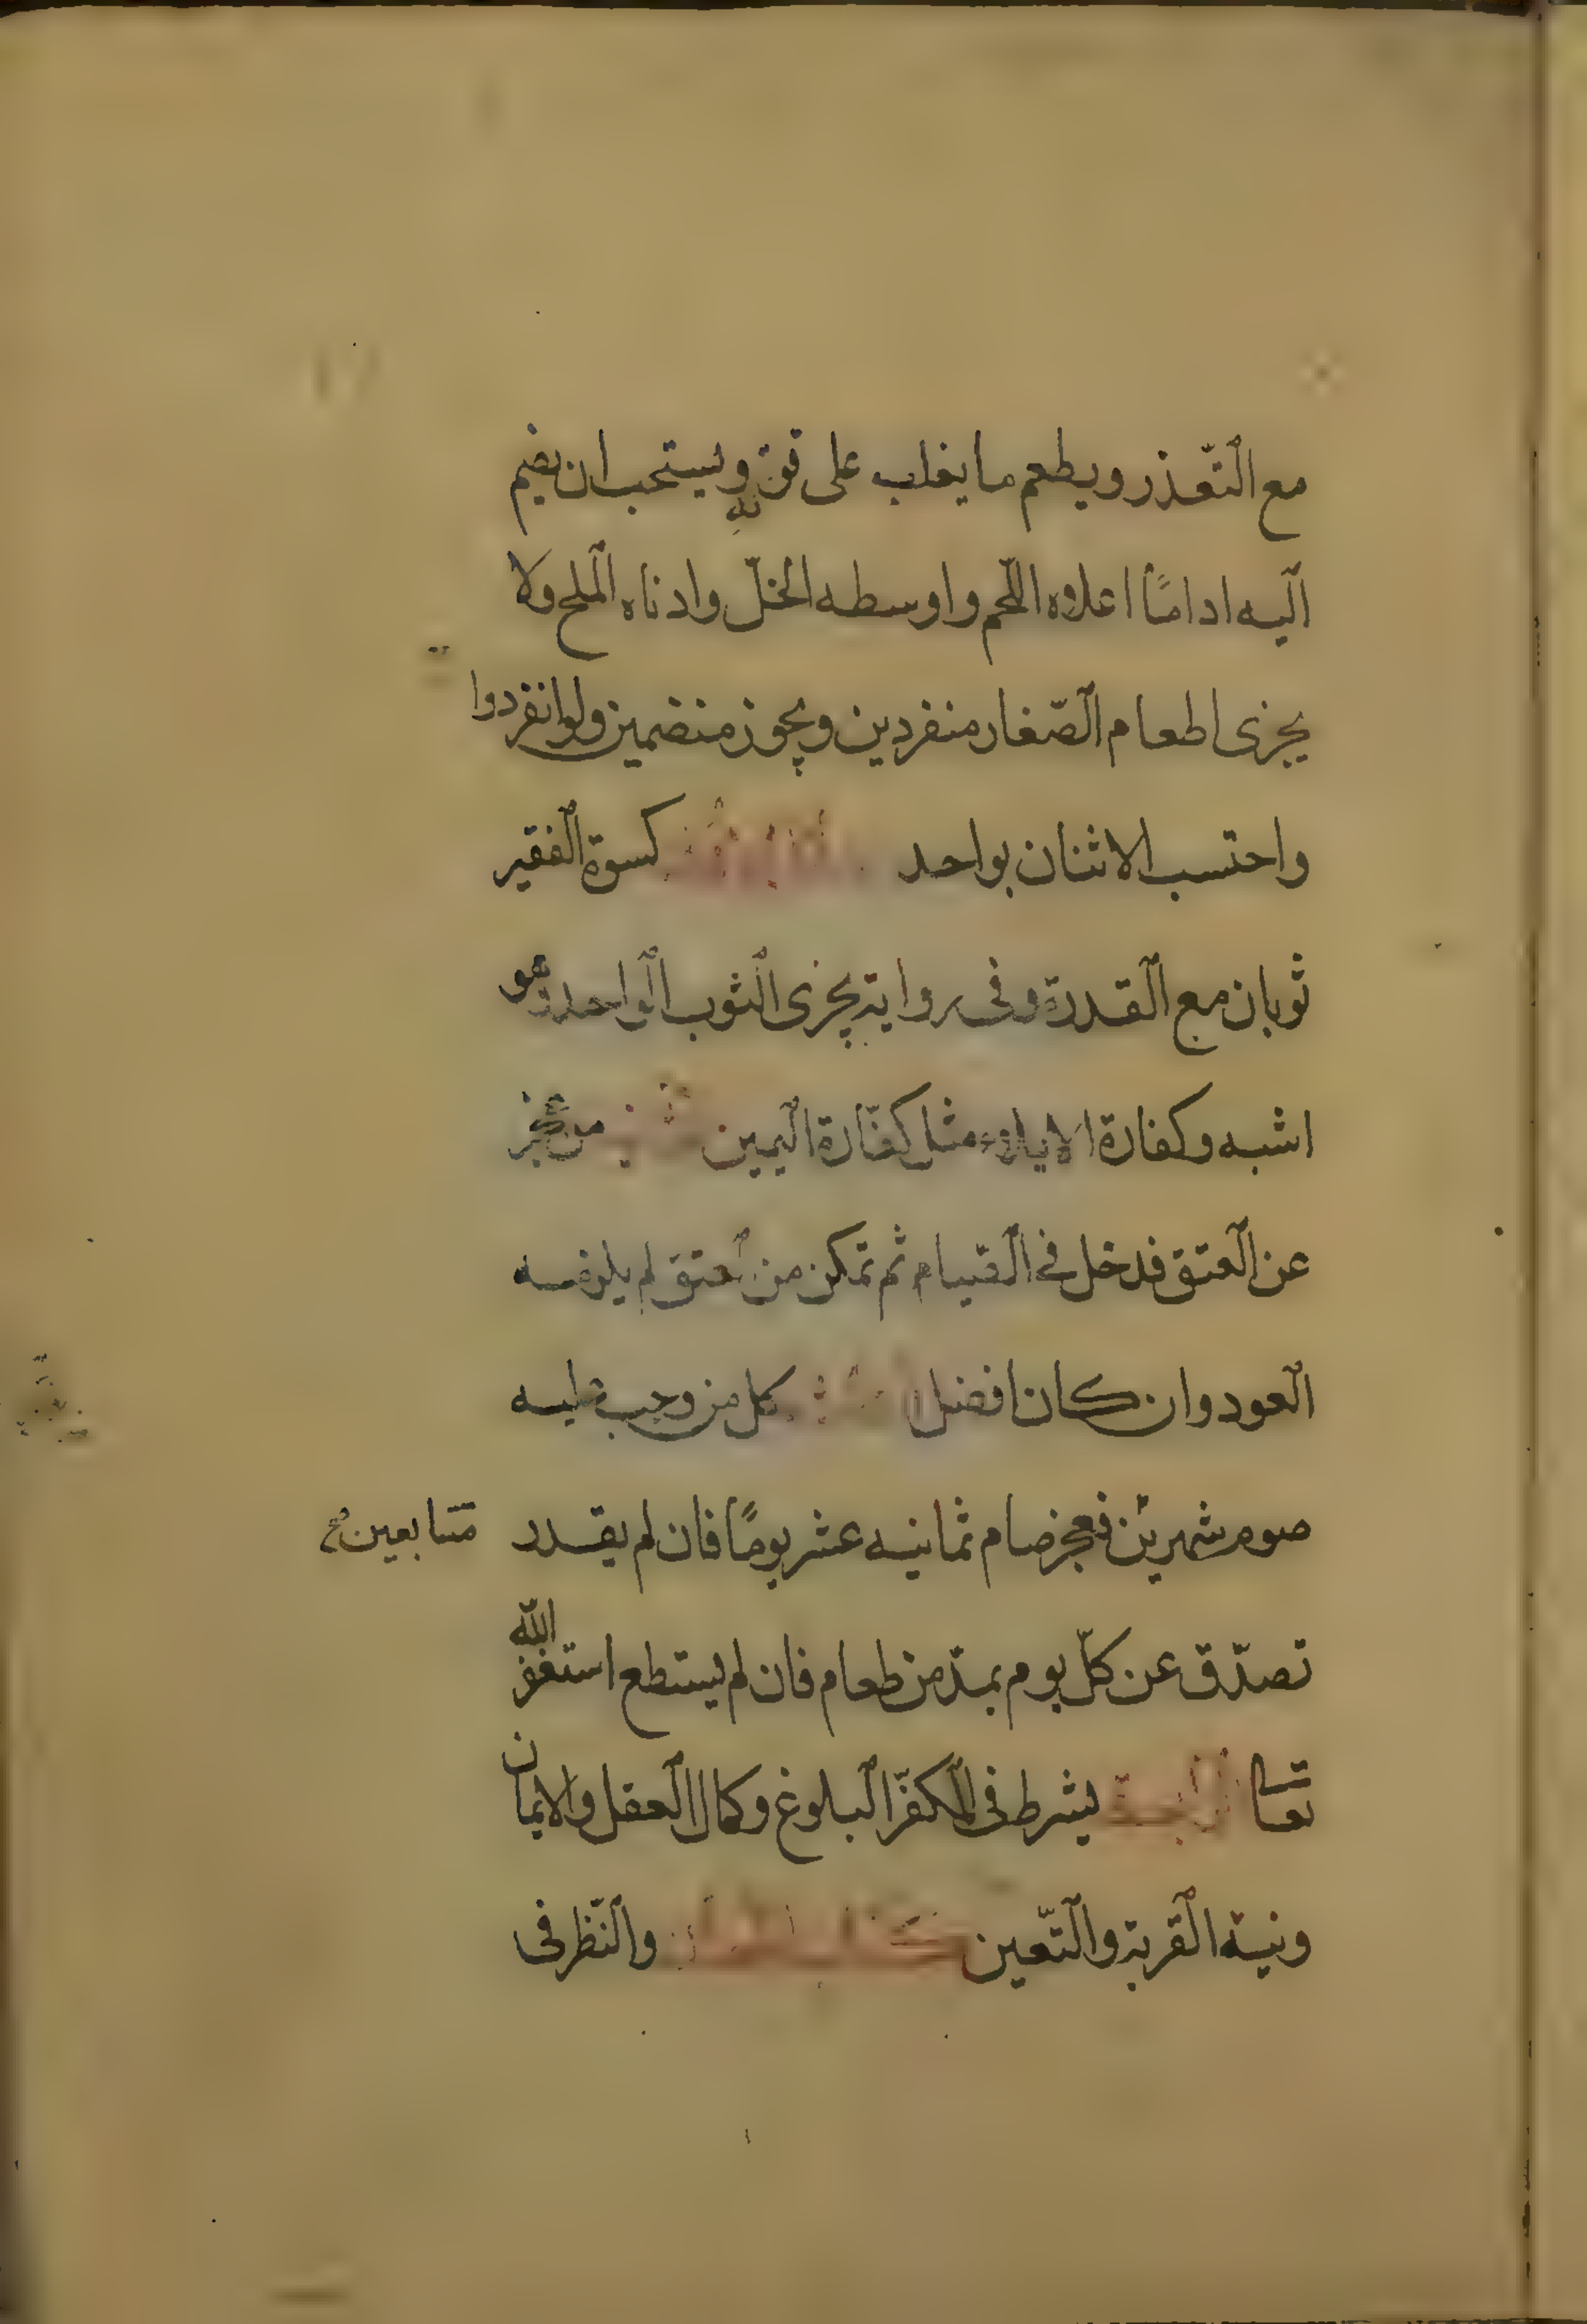 مع التّعذر ويطعم ما يغلب على قوته ويستحب ان يضم
اليه اداما اعلاه اللّحم واوسطه الخلّ وادناه الملح ولا
يجزى اطعام الصّغار منفردين ويجوز منضمين ولو انفردوا
واحتسب الاثنان بواحد كسوة الفقير
ثوبان مع القدرة وفى رواية يجزى الثوب الواحد وهو
اشبه وكفارة الايلاء مثل كفّارة اليمين من عجز
عن العتق فدخل فى الصّيام ثم تمكن من العتق لم يلزمه
العود وان كان افضل كل من وجب عليه
صوم شهرين فعجز صام ثمانيه عشر يومًا فان لم يقدر
متتابعين صح
تصدّق عن كلّ يوم بمدّ من طعام فان لم يستطع استغفر الله
تعالى الرابعة يشرط فى المكفّر البلوغ وكمال العقل والايمان
ونية القربة والتّعين كتاب والنّظر فى